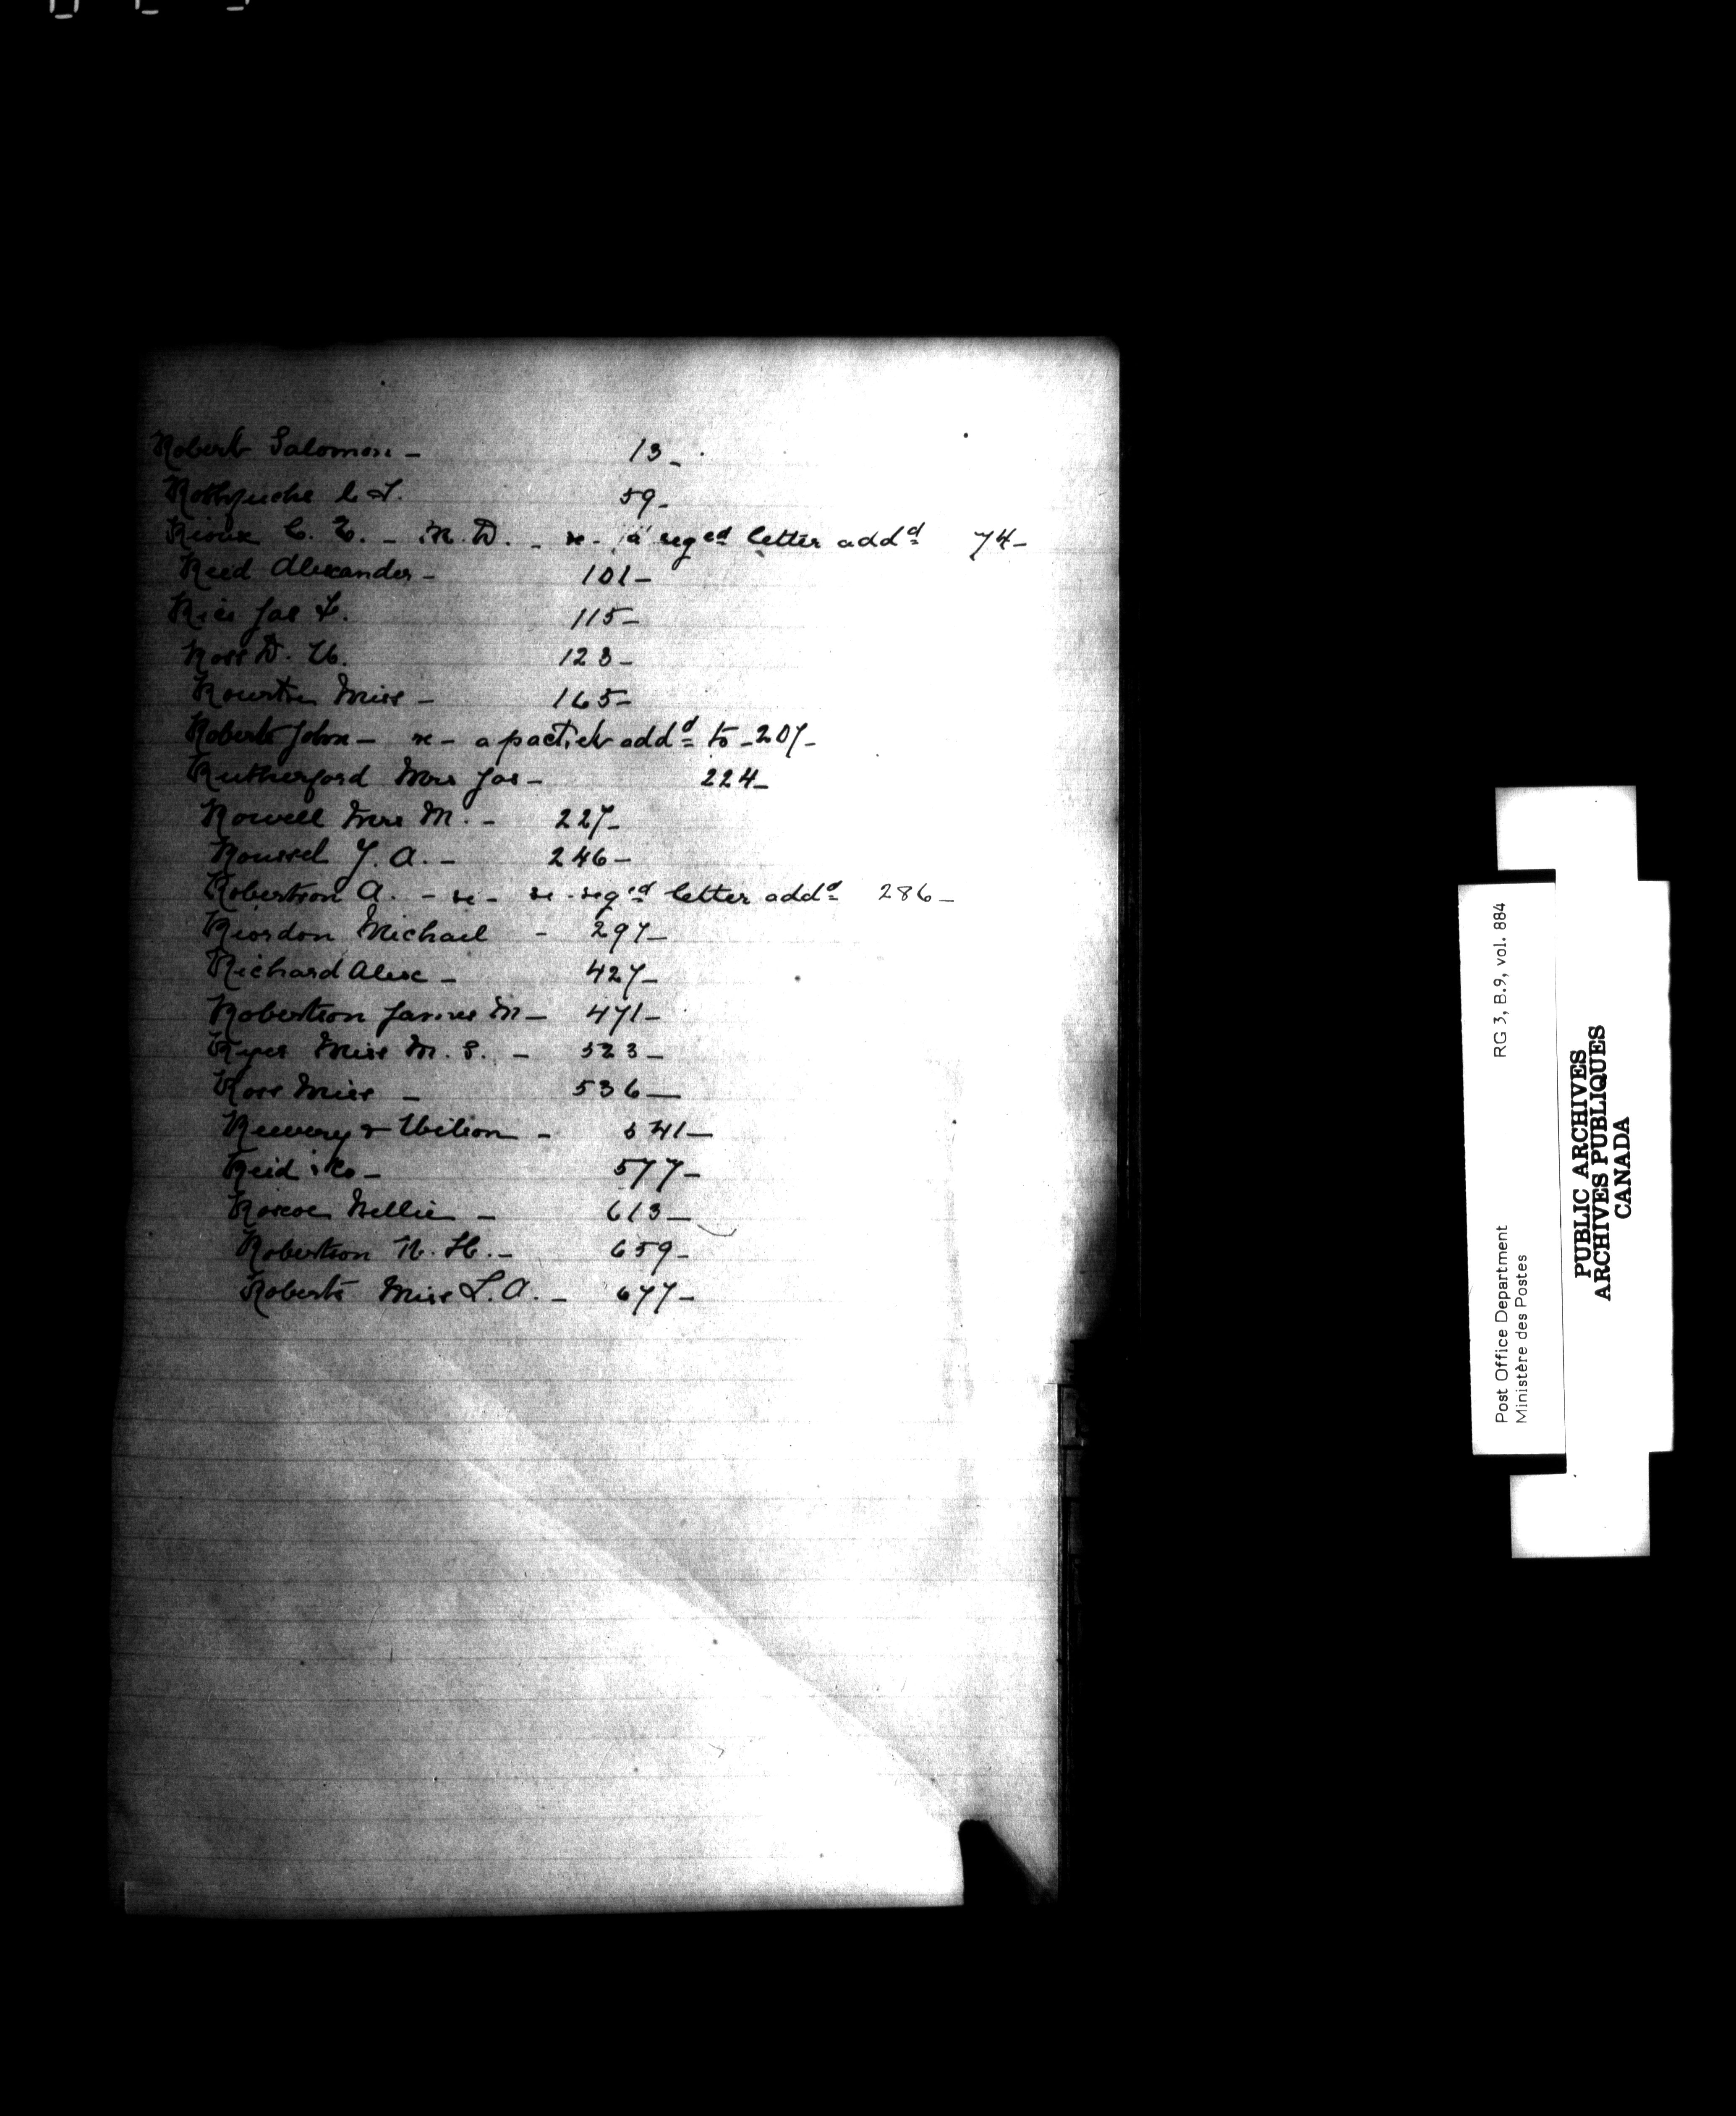 Robert Salomon - 13 -
59 -
Rioux C. E. - M.D. - re - a reged letter addd 74 -
Reid Alexander - 101 -
Rice Jas F. 115 -
Ross D. W. 123 -
Miss - 165 -
Roberts John - re - a packet addd to - 207 -
Rutherford Mrs Jas - 224 -
Rowell Mrs M. - 227 -
Roussel J. A. - 246 -
Robertson A. - re - re - regd letter addd 286 -
Riordon Michael - 297 -
Richard Alex - 427 -
Robertson James M - 471 -
Miss M. S. - 523 -
Ross Miss - 536 -
& Wilson - 541 -
Reid & Co - 577 -
Roscoe Nellie - 613 -
Robertson N. H. - 659 -
Roberts Miss L. A. - 677 -
Post Office Department RG 3, B.9, vol. 884
Ministère des Postes
PUBLIC ARCHIVES
ARCHIVES PUBLIQUES
CANADA